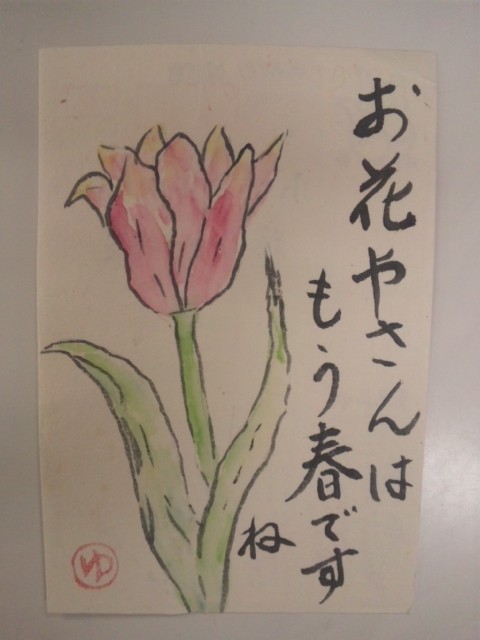 お花やさんは
もう春です
ね
ゆ